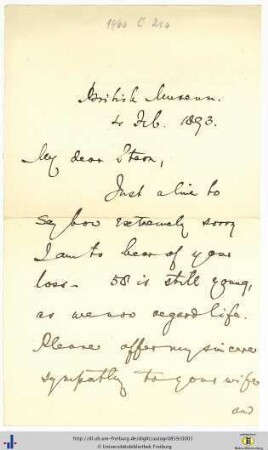 1960 C 210
British Museum.
4 Feb. 1893.
My dear Stern,
Just a line to
say how extremely sorry
I am to hear of your
loss. 58 is still young,
as we now regard life.
Please offer my sincere
sympathy to your wife
and
http://dl.ub.uni-freiburg.de/diglit/autogr0859/0001
© Universitätsbibliothek Freiburg